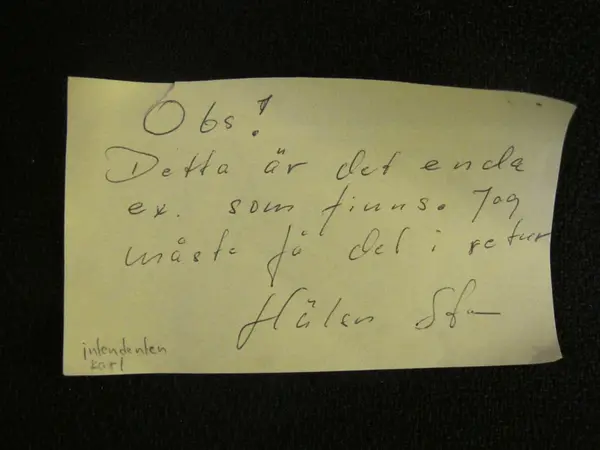 Obs!
Detta är det enda
ex. som finns. Jag
måste få det i retur
intendenten
karl